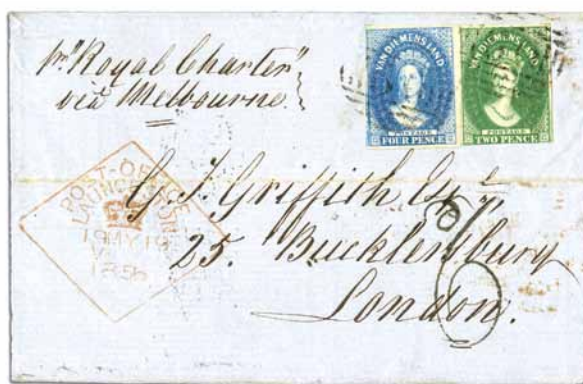 pr "Royal Charter"
via Melbourne.
VAN DIEMENS LAND
POSTAGE
FOUR PENCE
VAN DIEMENS LAND
POSTAGE
TWO PENCE
POST-OFFICE
LAUNCESTON
19 MY 19
1856
G. J. Griffith Esqre
25. Bucklersbury
London.
6